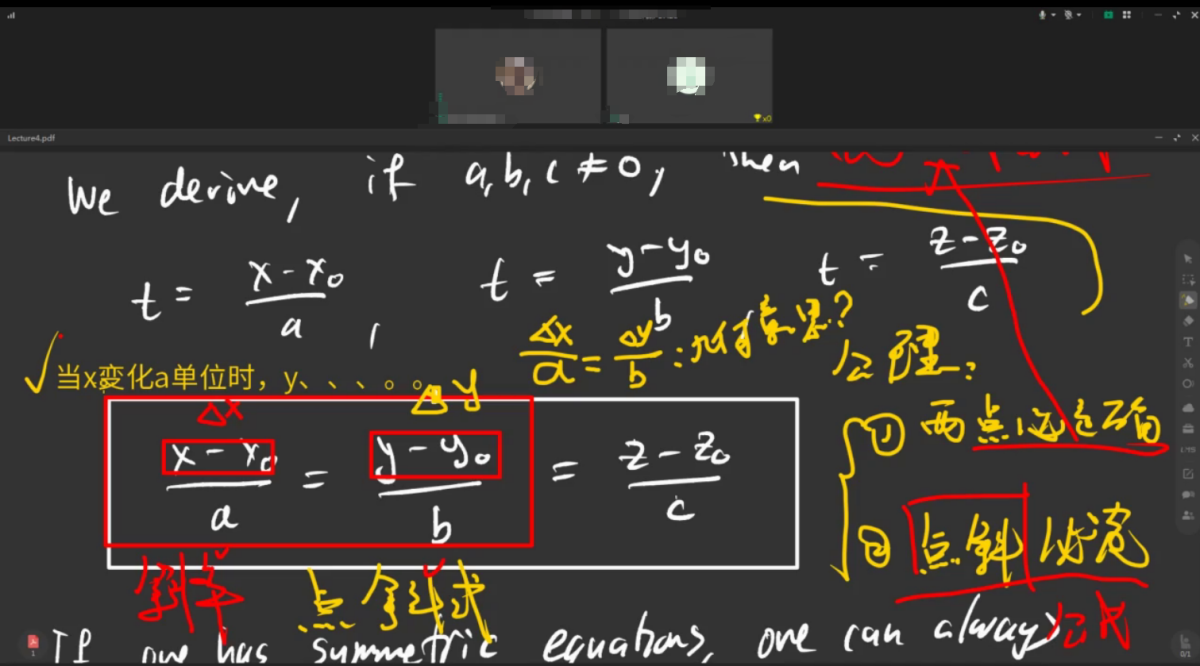 Lecture4.pdf
We derive, if a, b, c ≠ 0, then
t = x - x₀ / a , t = y - y₀ / b t = z - z₀ / c
Δx / a = Δy / b : 几何意思?
公理:
当x变化a单位时，y、、、。。。
Δx Δy
① 两点
x - x₀ / a = y - y₀ / b = z - z₀ / c
② 点斜
斜率 点斜式 公式
If one has symmetric equations, one can always